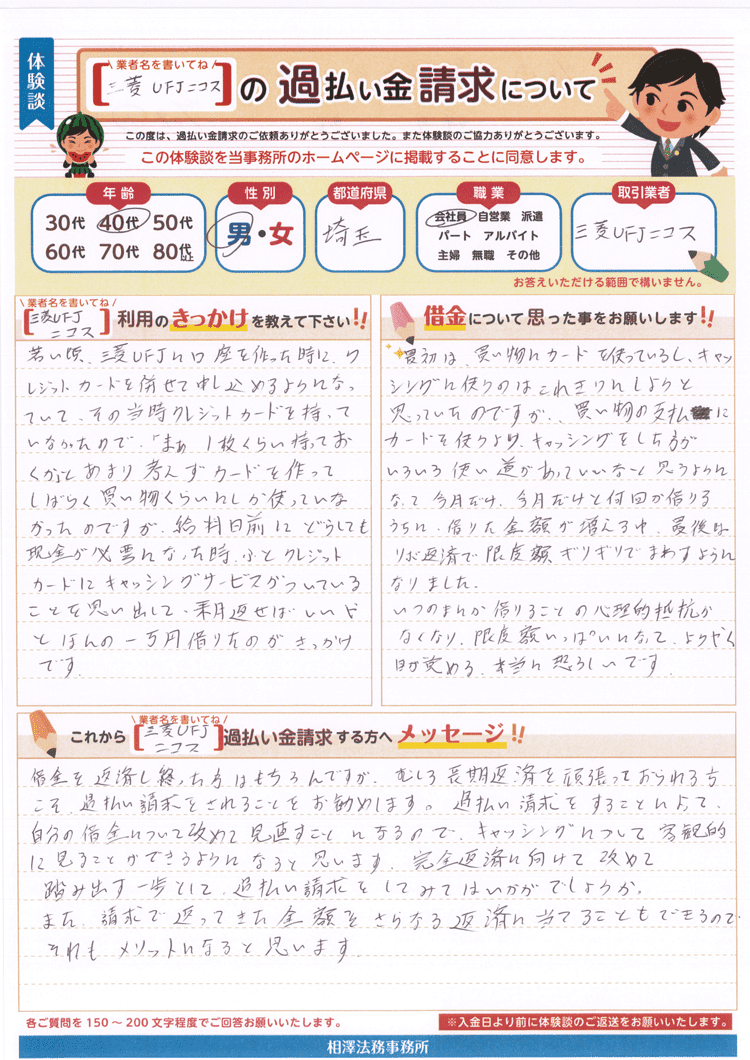 体験談
業者名を書いてね
[三菱UFJニコス]の過払い金請求について
この度は、過払い金請求のご依頼ありがとうございました。また体験談のご協力ありがとうございます。
この体験談を当事務所のホームページに掲載することに同意します。
年齢
30代 40代 50代
60代 70代 80代以上
性別
男・女
都道府県
埼玉
職業
会社員 自営業 派遣
パート アルバイト
主婦 無職 その他
取引業者
三菱UFJニコス
お答えいただける範囲で構いません。
業者名を書いてね
[三菱UFJニコス]利用のきっかけを教えて下さい!!
若い頃、三菱UFJに口座を作った時に、ク
レジットカードを併せて申し込めるようになっ
ていて、その当時クレジットカードを持って
いなかったので、「まぁ1枚くらい持ってお
くか」とあまり考えずカードを作って
しばらく買い物くらいにしか使っていな
かったのですが、給料日前にどうしても
現金が必要になった時、ふとクレジット
カードにキャッシングサービスがついている
ことを思い出して、来月返せばいいや
とほんの一万円借りたのがきっかけ
です。
借金について思った事をお願いします!!
最初は、買い物にカードを使っているし、キャッ
シングに使うのはこれきりにしようと
思っていたのですが、買い物の支払に
カードを使うより、キャッシングをした方が
いろいろ使い道があっていいなーと思うように
なって今月だけ、今月だけと何回か借りる
うちに、借りた金額が増える中、最後は
リボ返済で限度額ギリギリでまわすように
なりました。
いつのまにか借りることの心理的抵抗が
なくなり、限度額いっぱいになって、ようやく
目が覚める、本当に恐ろしいです。
これから
業者名を書いてね
[三菱UFJニコス]過払い金請求する方へメッセージ!!
借金を返済し終った方はもちろんですが、むしろ長期返済を頑張っておられる方
こそ、過払い請求をされることをお勧めします。過払い請求をすることによって、
自分の借金について改めて見直すことになるので、キャッシングについて客観的
に見ることができるようになると思います。完全返済に向けて改めて
踏み出す一歩として、過払い請求をしてみてはいかがでしょうか。
また、請求で返ってきた金額をさらなる返済に当てることもできるので
それもメリットになると思います。
各ご質問を150〜200文字程度でご回答お願いいたします。
※入金日より前に体験談のご返送をお願いいたします。
相澤法務事務所